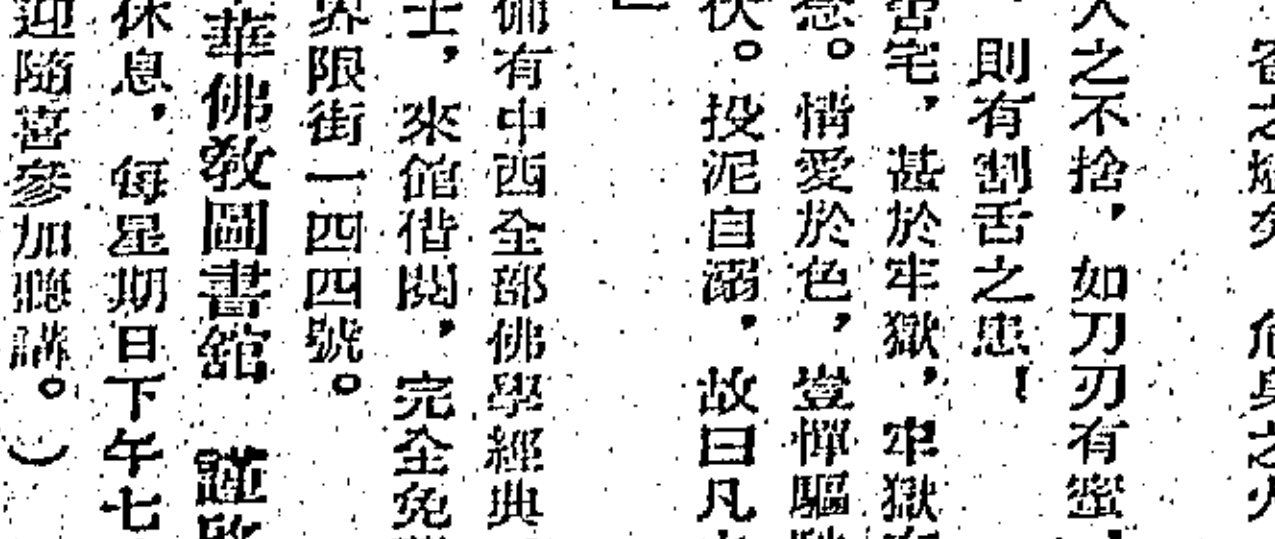 之
人之不捨，如刀刃有蜜，
，則有割舌之患！
舍宅，甚於牢獄，牢獄有
念。情愛於色，豈憚驅馳
伏。投泥自溺，故曰凡
備有中西全部佛學經典
士，來館借閱，完全免
界限街一四四號。
華佛教圖書館　謹啟
休息，每星期日下午七
迎隨喜參加聽講。）